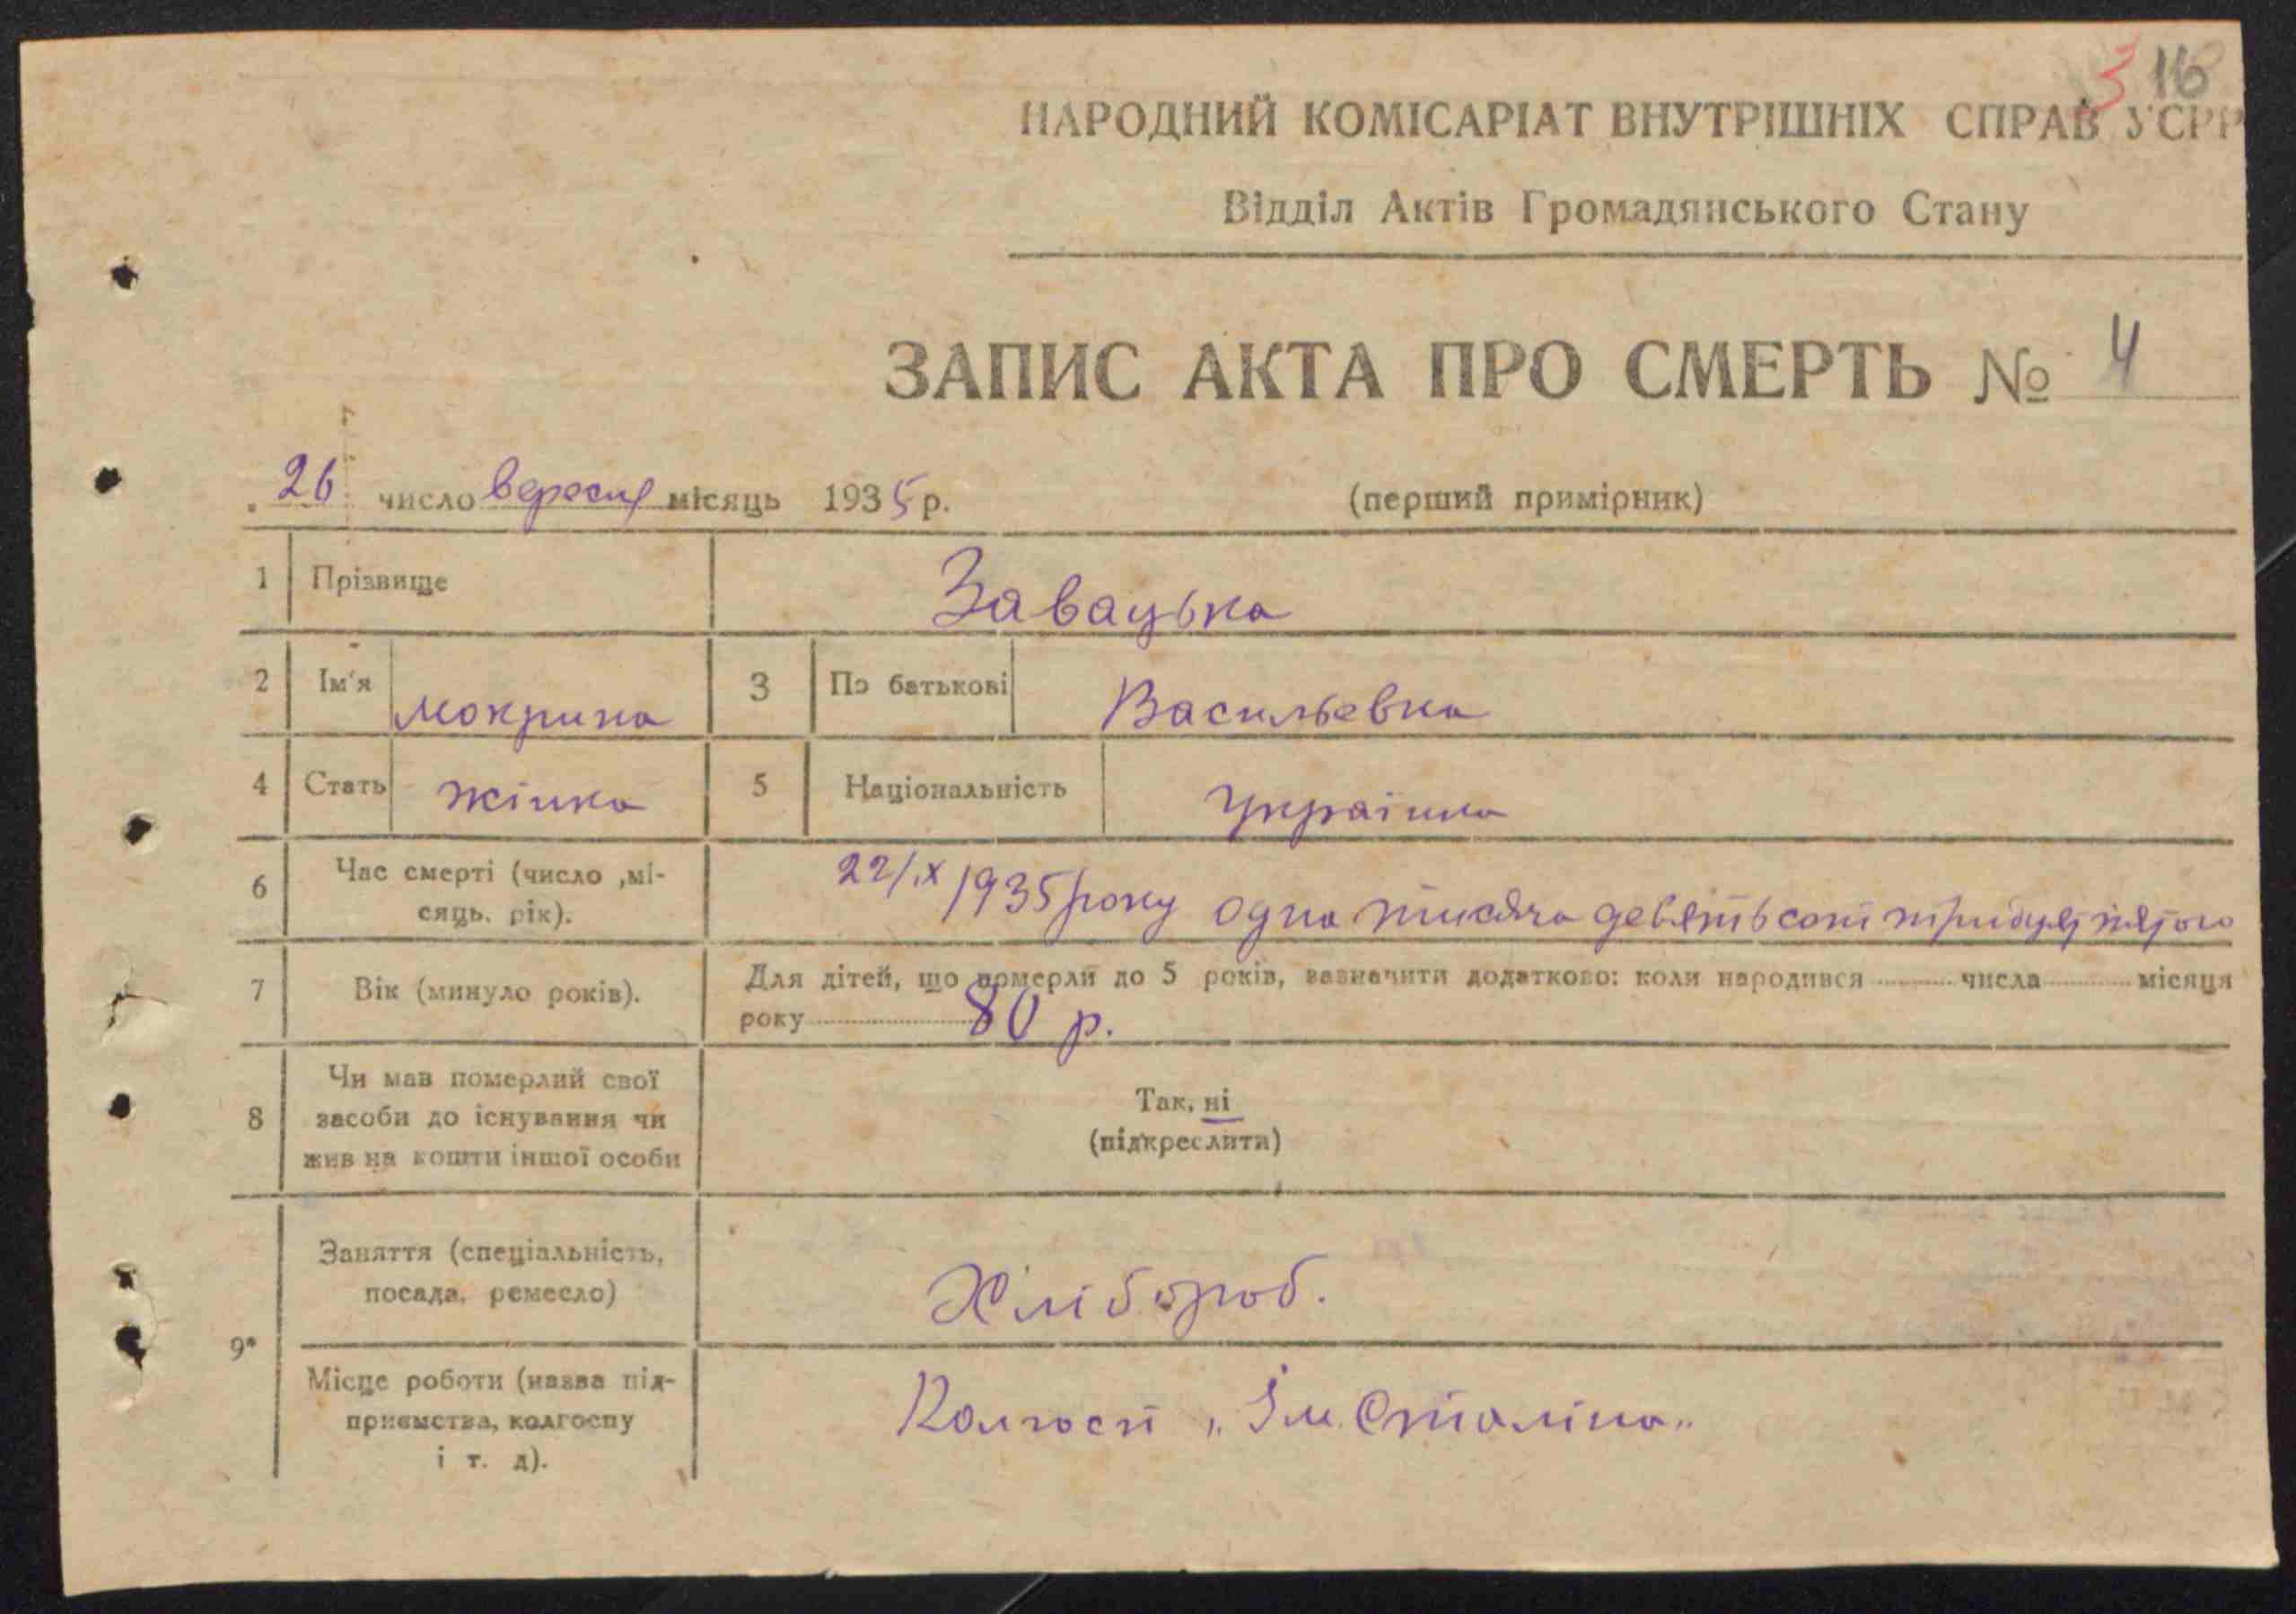 3 116
НАРОДНИЙ КОМІСАРІАТ ВНУТРІШНІХ СПРАВ УСРР
Відділ Актів Громадянського Стану
ЗАПИС АКТА ПРО СМЕРТЬ № 4
26 число вересня місяць 1935 р. (перший примірник)
1 Прізвище Завацька
2 Ім'я мокрина 3 По батькові Васильевна
4 Стать жінка 5 Національність Українка
6 Час смерті (число ,мі-
сяць. рік). 22/ІХ 1935 року одна тисяча девятьсот тридцять пятого
7 Вік (минуло років). Для дітей, що померли до 5 років, зазначити додатково: коли народився числа місяця
року 80 р.
8 Чи мав померлий свої
засоби до існування чи
жив на кошти іншої особи
Так, ні
(підкреслити)
9* Заняття (спеціальність,
посада, ремесло) Хлібороб.
Місце роботи (назва під-
приємства, колгоспу
і т. д). Колгосп „Ім. Сталіна"